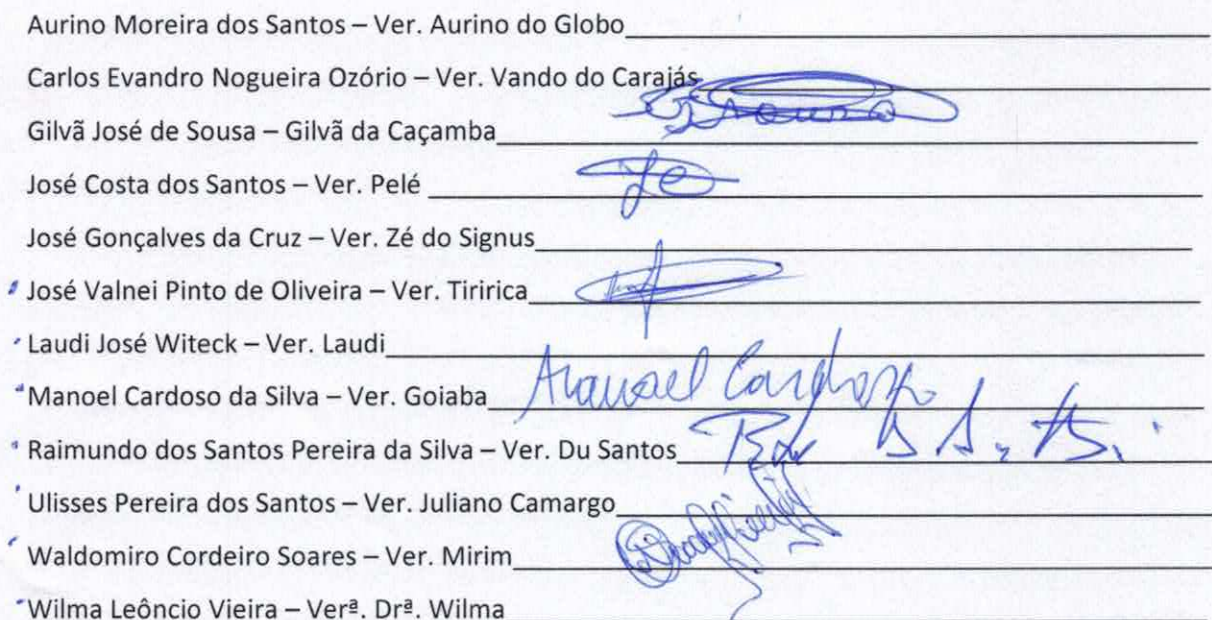 Aurino Moreira dos Santos – Ver. Aurino do Globo
Carlos Evandro Nogueira Ozório – Ver. Vando do Carajás
Gilvã José de Sousa – Gilvã da Caçamba
José Costa dos Santos – Ver. Pelé
José Gonçalves da Cruz – Ver. Zé do Signus
José Valnei Pinto de Oliveira – Ver. Tiririca
Laudi José Witeck – Ver. Laudi
Manoel Cardoso da Silva – Ver. Goiaba Manoel Cardoso
Raimundo dos Santos Pereira da Silva – Ver. Du Santos
Ulisses Pereira dos Santos – Ver. Juliano Camargo
Waldomiro Cordeiro Soares – Ver. Mirim
Wilma Leôncio Vieira – Verª. Drª. Wilma